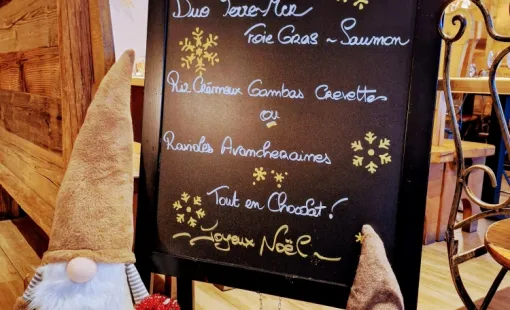 Duo Terre-Mer
Foie Gras ~ Saumon
Riz Crémeux Gambas Crevettes
ou
Ravioles Avancheraines
Tout en Chocolat !
~ Joyeux Noël ~